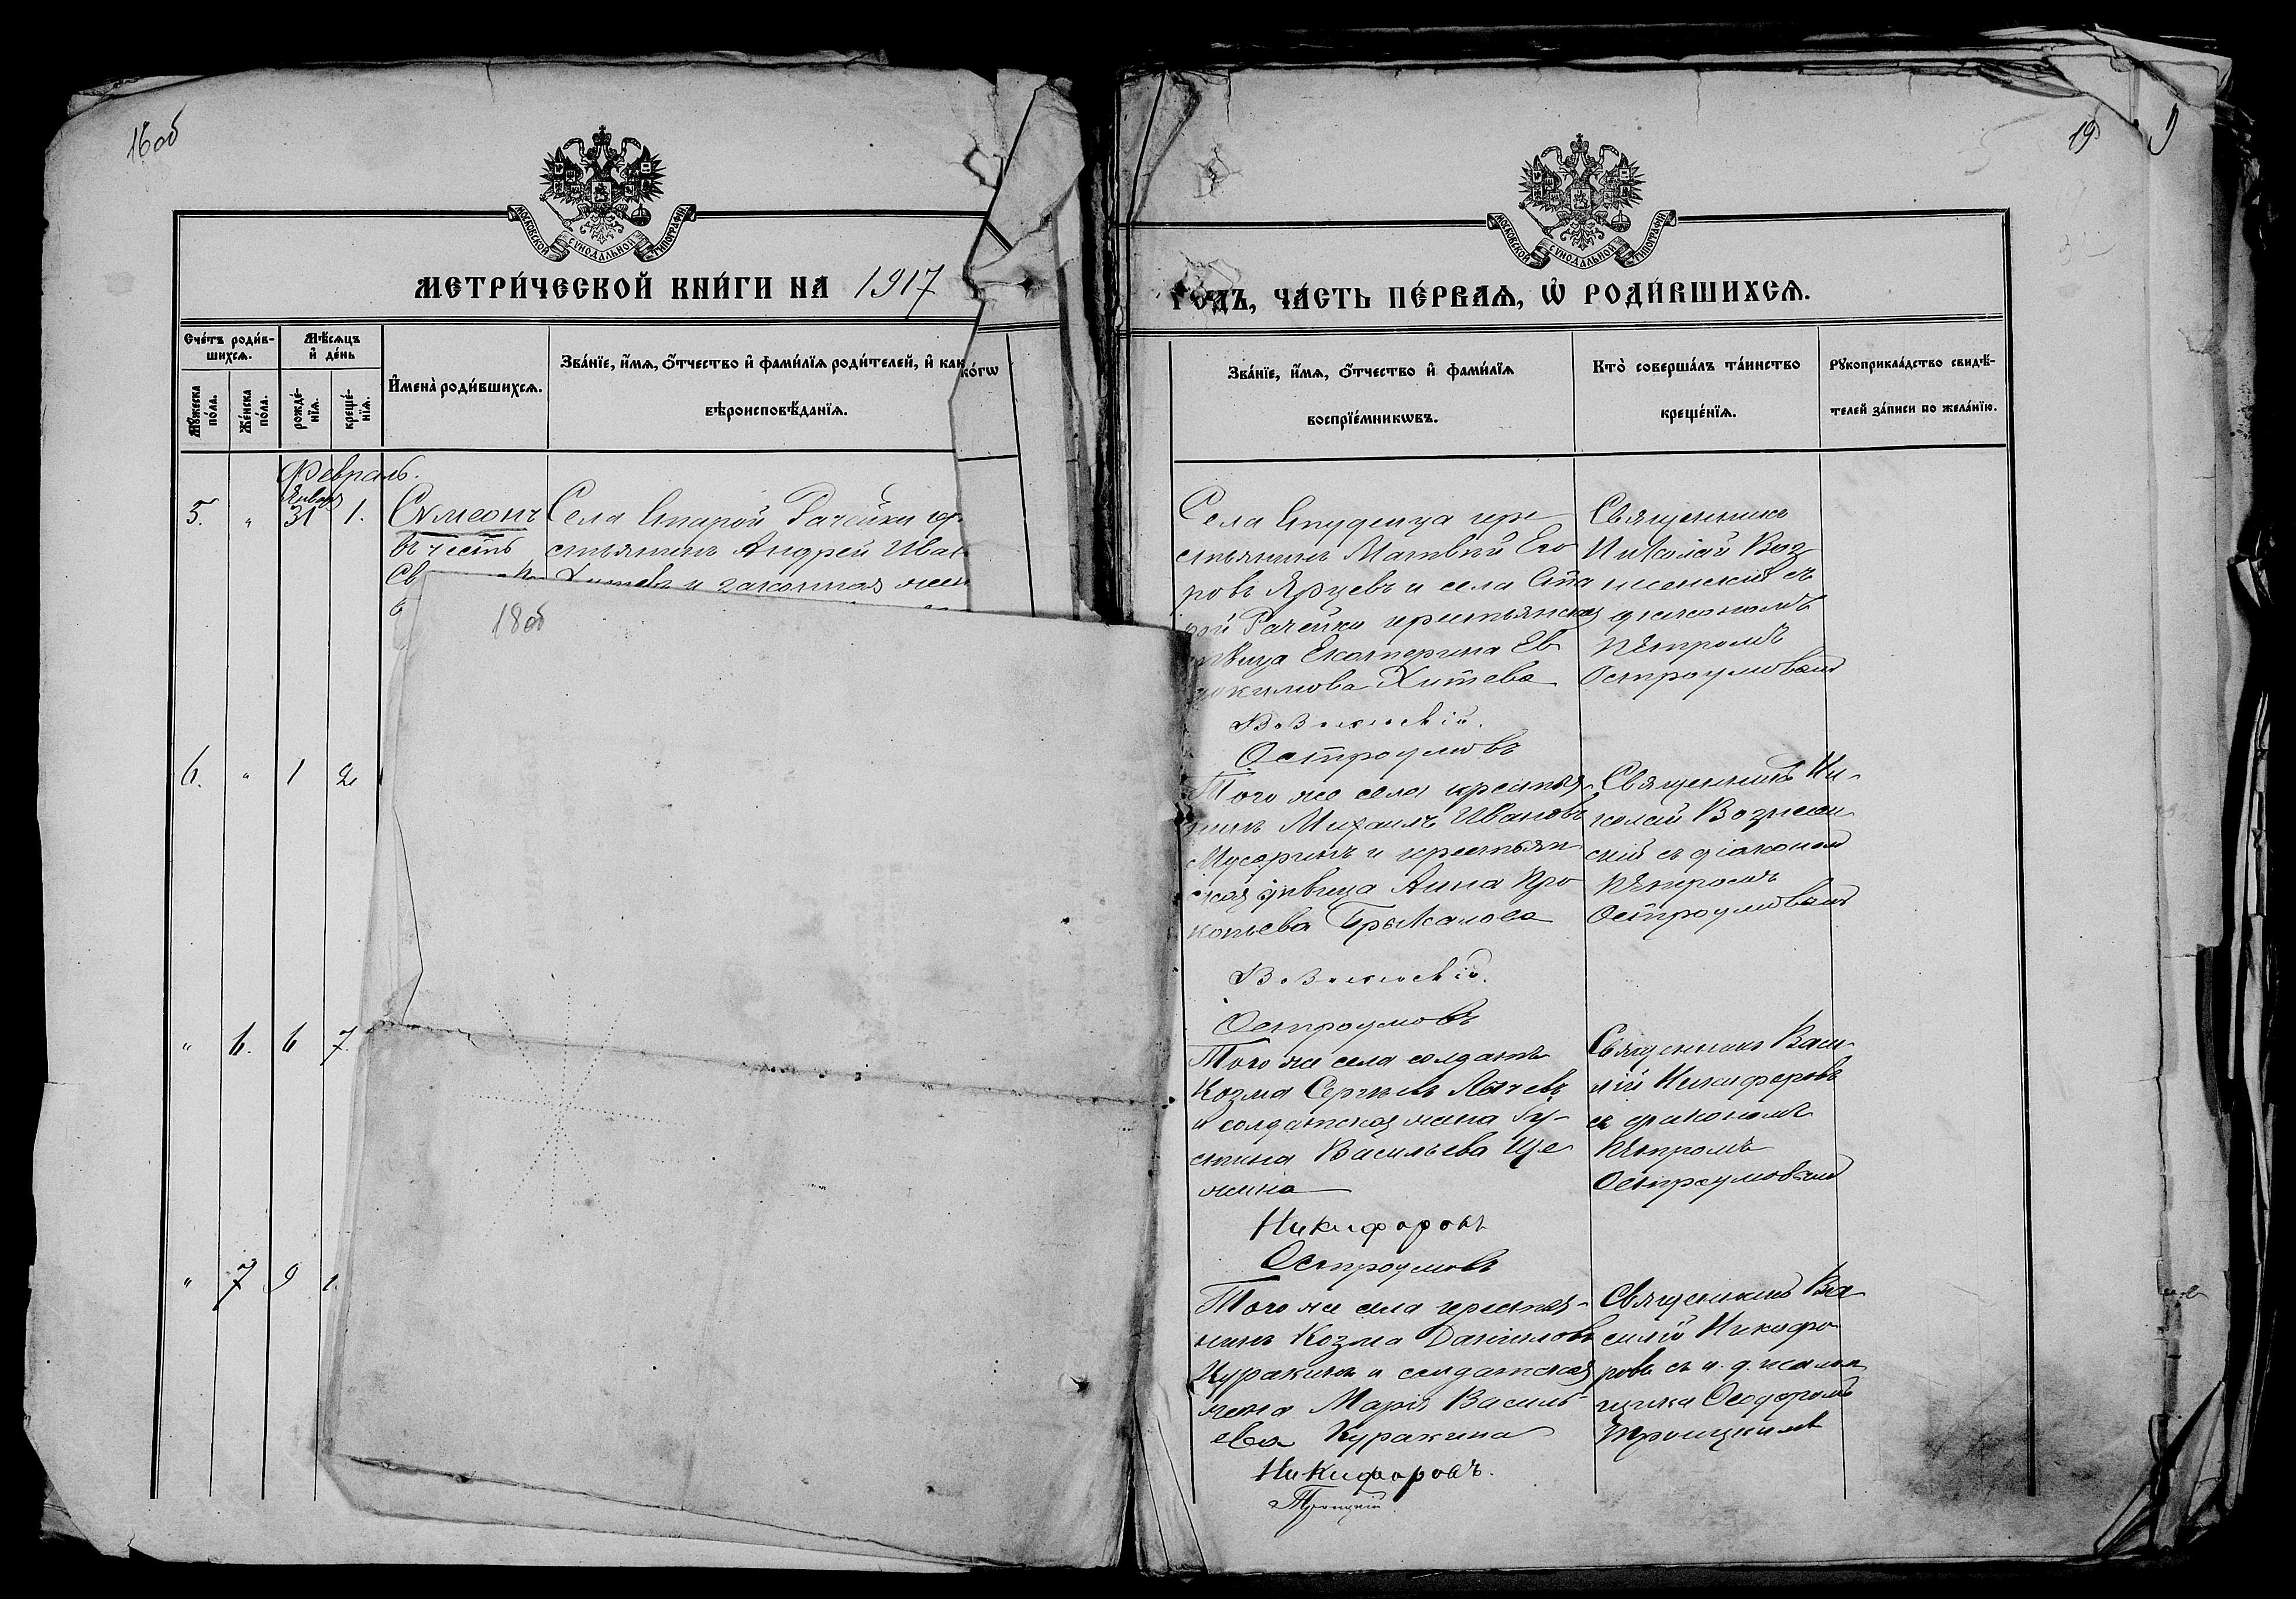 16 об
МОСКОВСКОЙ СѴНОДАЛЬНОЙ ТИПОГРАФІИ
МЕТРИ́ЧЕСКОЙ КНИ́ГИ НА 1917
Сче́тъ роди́в-
шихсѧ.
Мѣ́сѧцъ
и҆ де́нь
Мꙋ́жеска
по́ла.
Же́нска
по́ла.
рожде́-
нїѧ.
креще́-
нїѧ.
И҆мена̀ роди́вшихсѧ.
Зва́нїе, и҆́мѧ, ѻ҆́тчество и҆ фами́лїѧ роди́телей, и҆ как
ко́гѡ
вѣроисповѣ́данїѧ.
Февраль.
Январь
5. " 31 1. Сѵмеонъ Села Старой Рачейки кр
въ честь стьянинъ Андрей Иван
Св Хитевъ и законная жен
18 об
6. " 1 2
" 6. 6 7.
" 7 9
19
МОСКОВСКОЙ СѴНОДАЛЬНОЙ ТИПОГРАФІИ
ГОДЪ, ЧА́СТЬ ПЕ́РВАѦ, Ѽ РОДИ́ВШИХСѦ.
Зва́нїе, и҆́мѧ, ѻ҆́тчество и҆ фами́лїѧ
воспрїе́мникѡвъ.
Кто̀ соверша́лъ та́инство
креще́нїѧ.
Рꙋкоприкла́дство свидѣ́-
телей за́писи по жела́нїю.
Села Студенца кре
стьянинъ Матвѣй Его
ровъ Ярцевъ и села Ста
рой Рачейки крестьянская
дѣвица Екатерина Ев
докимова Хитева
Вознесенскій.
Остроумовъ
Священникъ
Николай Воз
несенскій съ
діакономъ
Петромъ
Остроумовымъ
Того же села крестья-
нинъ Михаилъ Ивановъ
Мусоринъ и крестьян
ская дѣвица Анна Про
копьева
Вознесенскій.
Остроумовъ
Священникъ Ни-
колай Вознесен
скій съ діакономъ
Петромъ
Остроумовымъ
Того же села солдатъ
Козма Сергѣевъ Лычевъ
и солдатская жена Іу-
стина Васильева Ще
жина
Никифоровъ
Остроумовъ
Священникъ Васи-
лій Никифоровъ
съ діакономъ
Петромъ
Остроумовымъ
Того же села крестья-
нинъ Козма Даніиловъ
Куракинъ и солдатская
жена Марія Василь-
ева Куракина
Никифоровъ.
Троицкій
Священникъ Ва
силій Никифо
ровъ съ и. д. псалом
щика Ѳеодоромъ
Троицкимъ